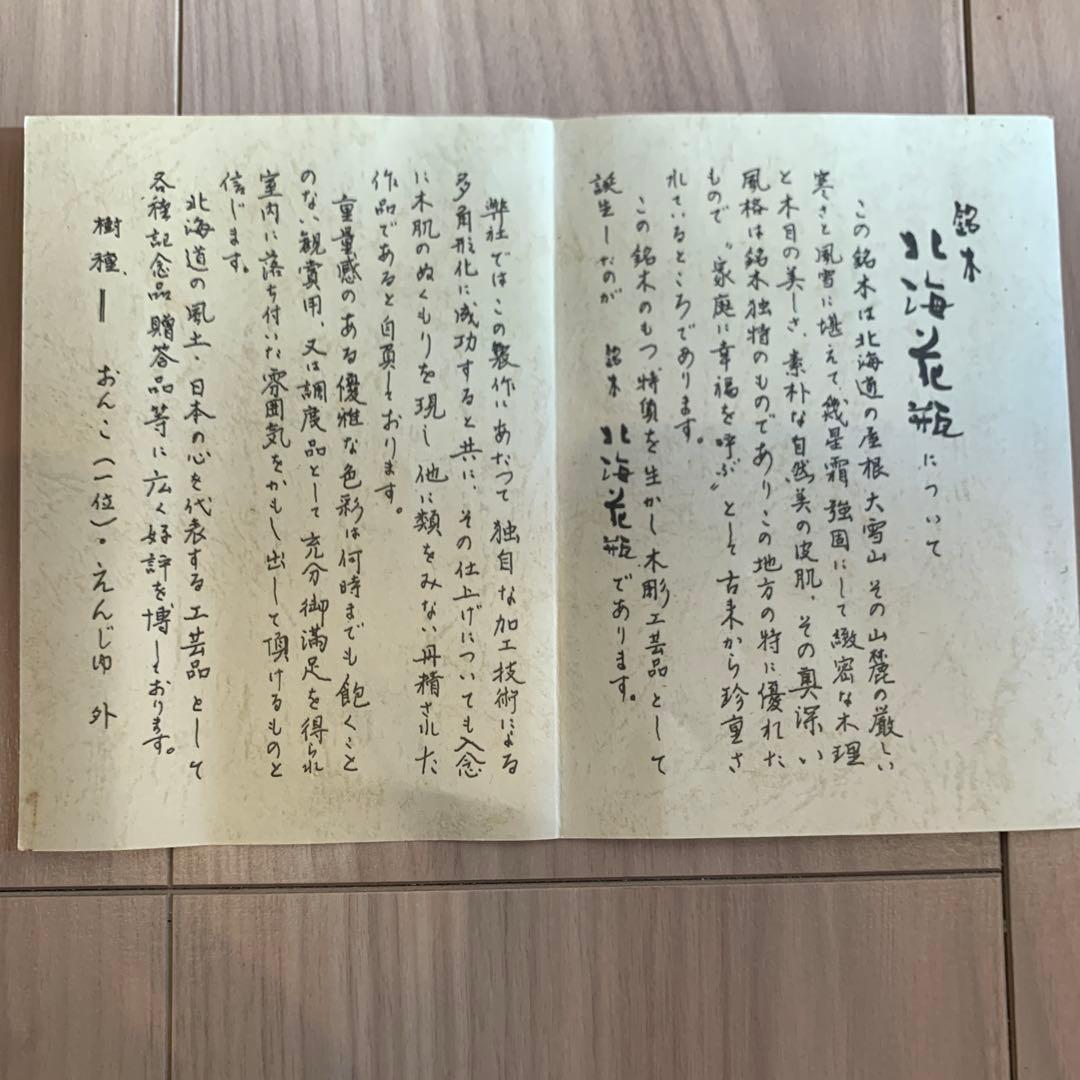 銘木
北海花瓶について
この銘木は北海道の屋根大雪山その山麓の厳しい
寒さと風雪に堪えて、幾星霜強固にして緻密な木理
と木目の美しさ、素朴な自然美の皮肌、その奥深い
風格は銘木独特のものでありこの地方の特に優れた
もので〝家庭に幸福を呼ぶ〟として古来から珍重さ
れているところであります。
この銘木のもつ特質を生かし木彫工芸品として
誕生したのが 銘木 北海花瓶であります。
弊社ではこの製作にあたつて独自な加工技術による
多角形化に成功すると共に、その仕上げについても入念
に木肌のぬくもりを現し他に類をみない丹精された
作品であると自負しております。
重量感のある優雅な色彩は何時までも飽くこと
のない観賞用、又は調度品として充分御満足を得られ
室内に落ち付いた雰囲気をかもし出して頂けるものと
信じます。
北海道の風土、日本の心を代表する工芸品として
各種記念品贈答品等に広く好評を博しております。
樹種、― おんこ(一位)・えんじゆ 外